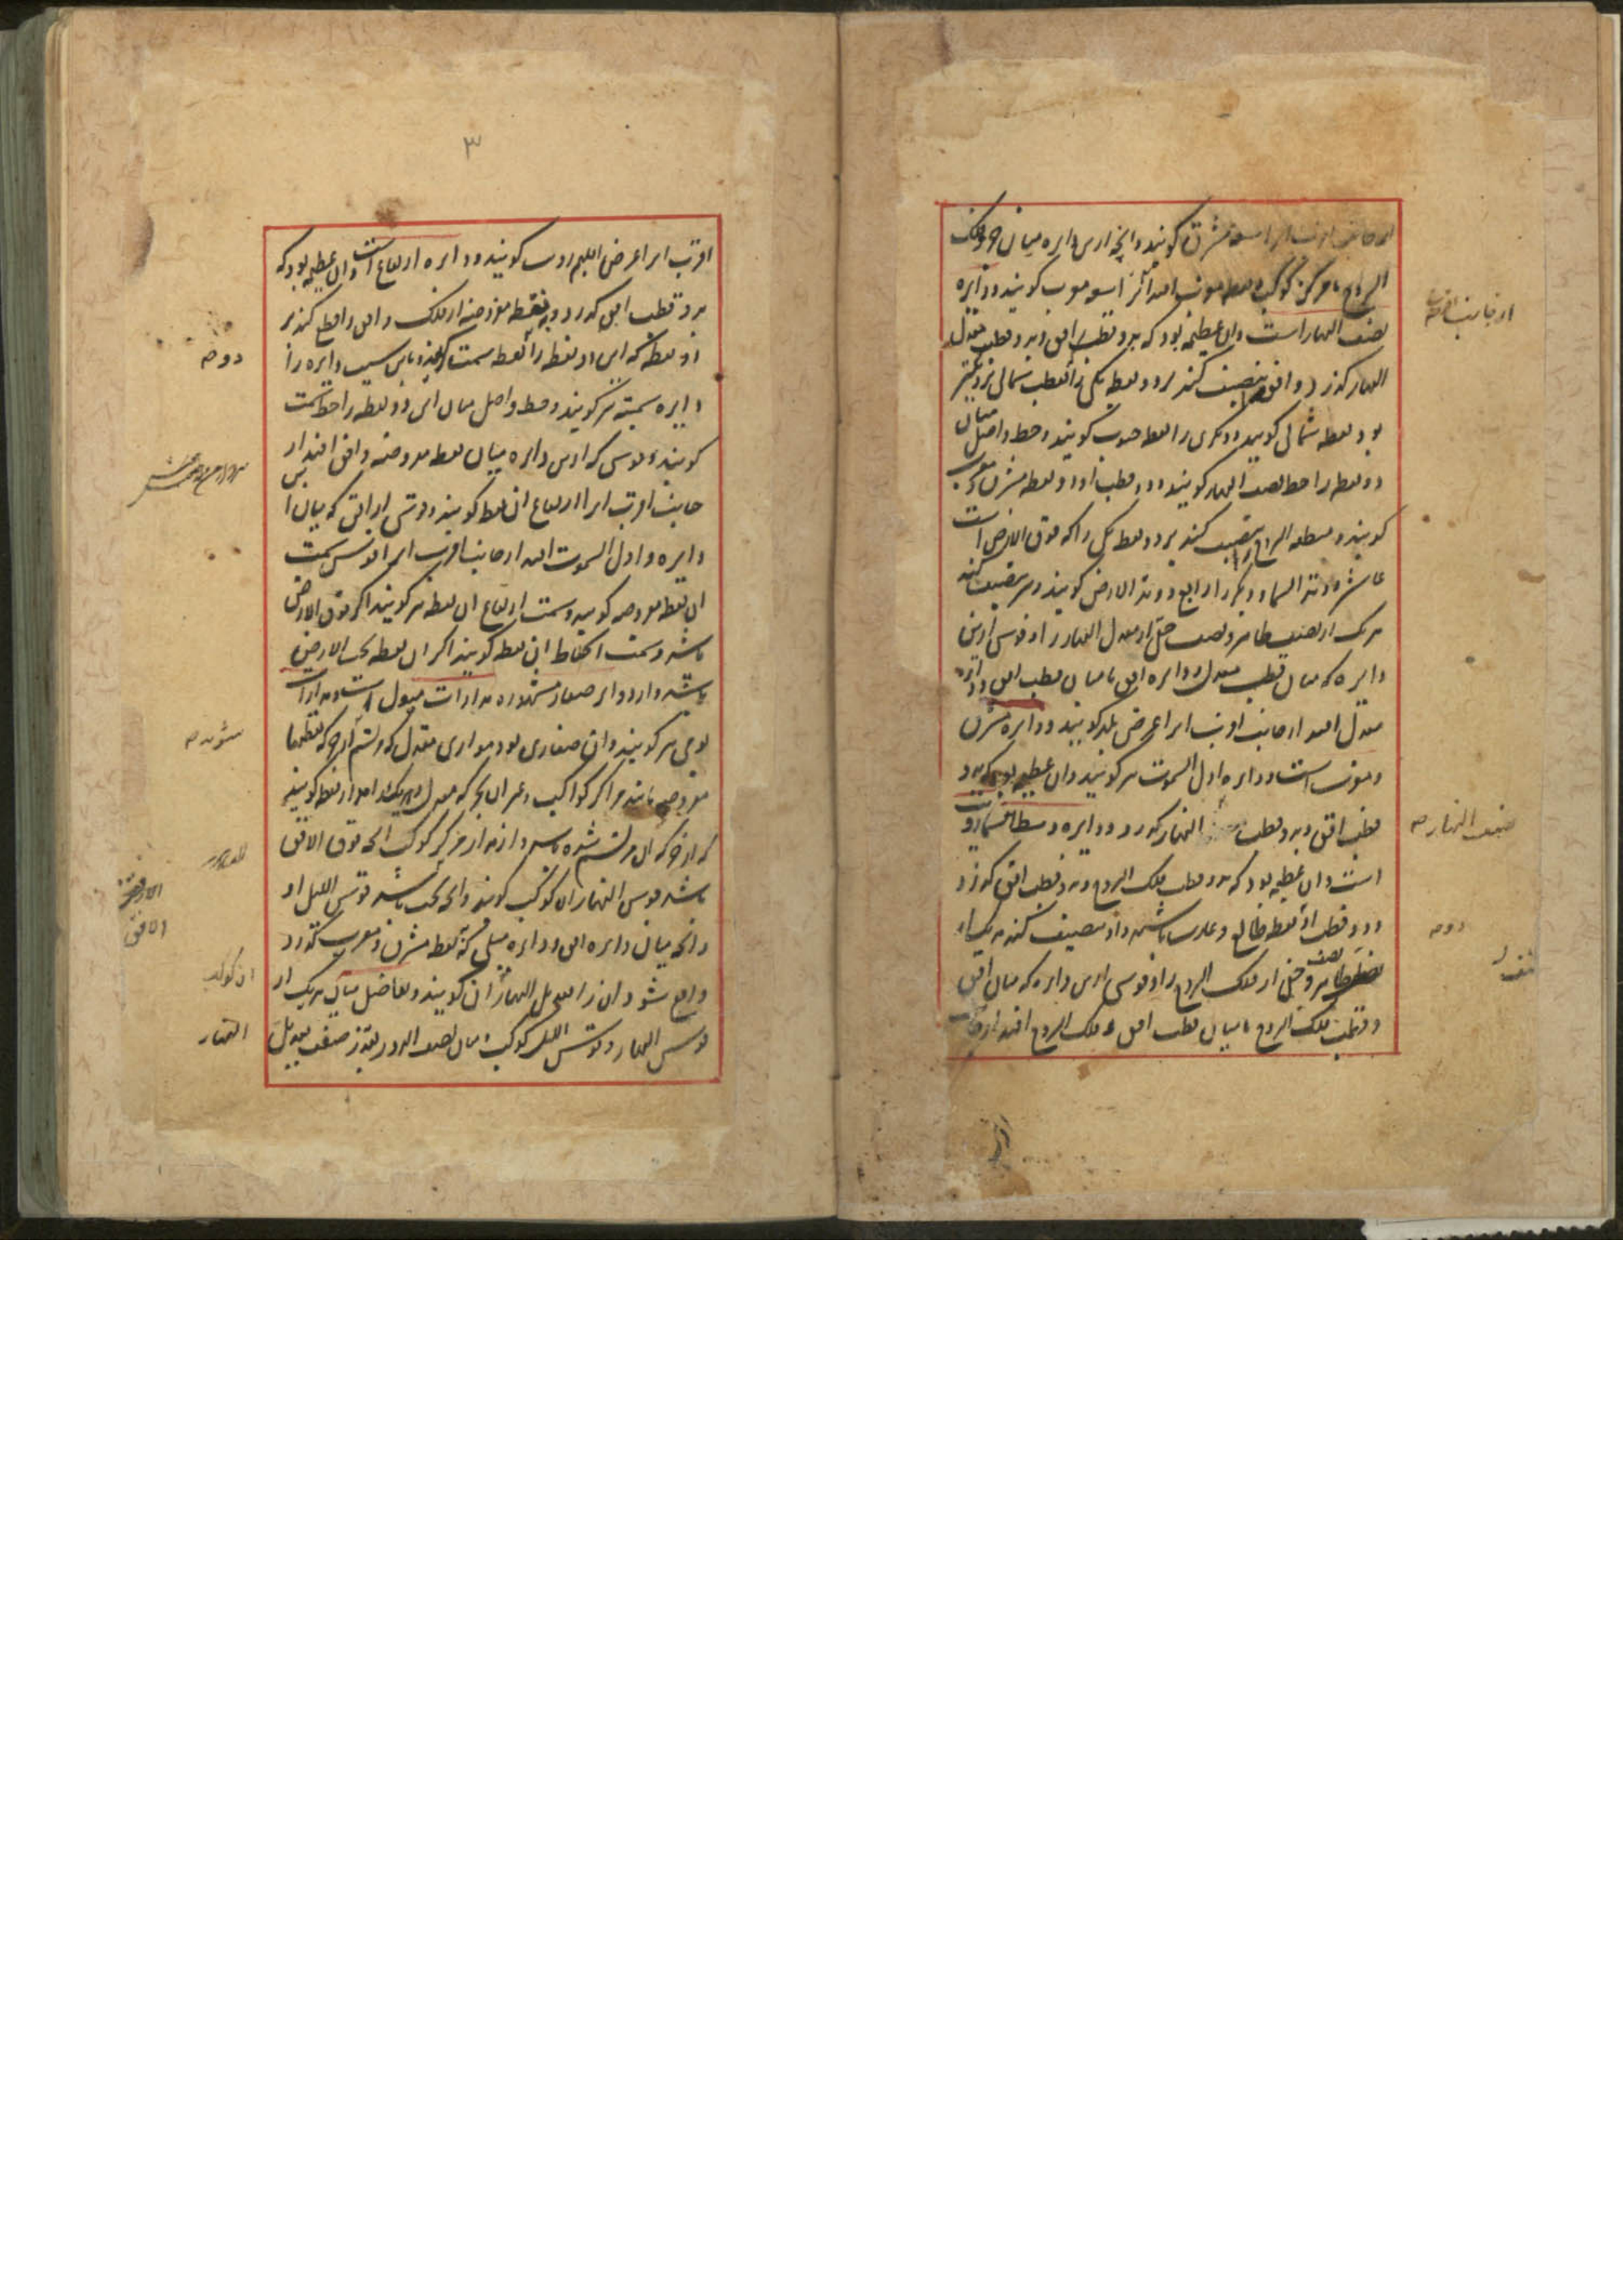 از جانب اقرب انرا سعه مشرق کویند و انچه ازین دایره میان جزو فلک
البروج یا مرکز کوکب و نقطه مغرب افتد انرا سعه مغرب کویند و دایره
نصف النهار است و ان عظیمه بود که بدو قطب افق و بدو قطب معدل
النهار کذرد و افق را تنصیف کند بر دو نقطه یکی را که بقطب شمالی نزدیکتر
بود نقطه شمالی کویند و دیکری را نقطه جنوب کویند و خط واصل میان
دو نقطه را خط نصف النهار کویند و دو قطب او دو نقطه مشرق و مغرب
کویند و منطقه البروج را تنصیف کند بر دو نقطه یکی را که فوق الارض است
عاشر و وتد السما و دیکر را رابع و وتد الارض کویند و نیز تنصیف کند
هر یک از نصف ظاهر و نصف خفی از معدل النهار را و قوسی ازین
دایره که میان قطب معدل و دایره افق یا میان قطب افق و دایره
معدل افتد از جانب اقرب انرا عرض بلد کویند و دایره مشرق
و مغرب است و دایره اول السموت نیز کویند و ان عظیمه بود که بدو
قطب افق و بدو قطب النهار کذرد و دایره وسط سما رویت
است و ان عظیمه بود که بدو قطب فلک البروج و بدو قطب افق کذرد
و دو قطب او نقطه طالع و غارب باشد و او تنصیف کند هر یک از
نصف ظاهر و خفی از فلک البروج را و قوسی ازین دایره که میان افق
و قطب فلک البروج یا میان قطب افق و فلک البروج افتد از جانب
از جانب اقرب
نصف النهار صح
دو صح
۳
اقرب انرا عرض اقلیم رویت کویند و دایره ارتفاع است و ان عظیمه بود که
بدو قطب افق کذرد و بهر نقطه مفروضه از فلک و افق را قطع کند بر
دو نقطه که این دو نقطه را نقطه سمت کویند و باین سبب دایره را
دایره سمتیه نیز کویند و خط واصل میان این دو نقطه را خط سمت
کویند و قوسی که ازین دایره میان نقطه مفروضه و افق افتد از
جانب اقرب انرا ارتفاع ان نقطه کویند و قوسی از افق که میان این
دایره و اول السموت افتد از جانب اقرب انرا قوس سمت
ان نقطه مفروضه کویند و سمت ارتفاع ان نقطه نیز کویند اکر فوق الارض
باشد و سمت انحطاط ان نقطه کویند اکر ان نقطه تحت الارض
باشد و از دوایر صغار مشهوره مدارات میول است و مدارات
یومی نیز کویند و ان صغاری بود موازی معدل که مرتسم
مفروضه مانند مراکز کواکب و غیر ان
که از حرکه ان مرتسم شده باشد و از مدار مرکز کوکب انچه فوق الافق
باشد قوس النهار ان کوکب کویند و انچه تحت باشد قوس اللیل او
و انچه میان دایره افق و دایره میلی که بنقطه مشرق و مغرب کذرد
واقع شود ان را تعدیل النهار ان کویند و تفاضل میان هر یک از
قوس النهار و قوس اللیل کوکب و میان نصف الدور بقدر ضعف تعدیل
دو صح
شود صح
الافق
ان کوکب
النهار